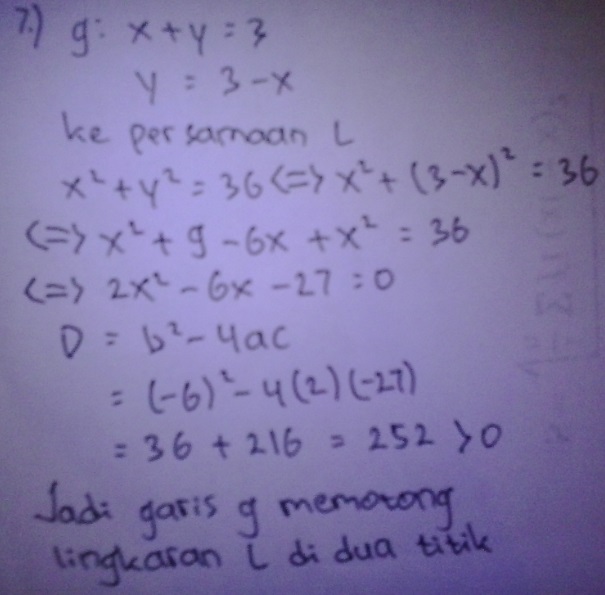 7.) g: x + y = 3
y = 3 - x
ke persamaan L
x² + y² = 36 <=> x² + (3-x)² = 36
<=> x² + 9 - 6x + x² = 36
<=> 2x² - 6x - 27 = 0
D = b² - 4ac
= (-6)² - 4(2)(-27)
= 36 + 216 = 252 > 0
Jadi garis g memotong
lingkaran L di dua titik